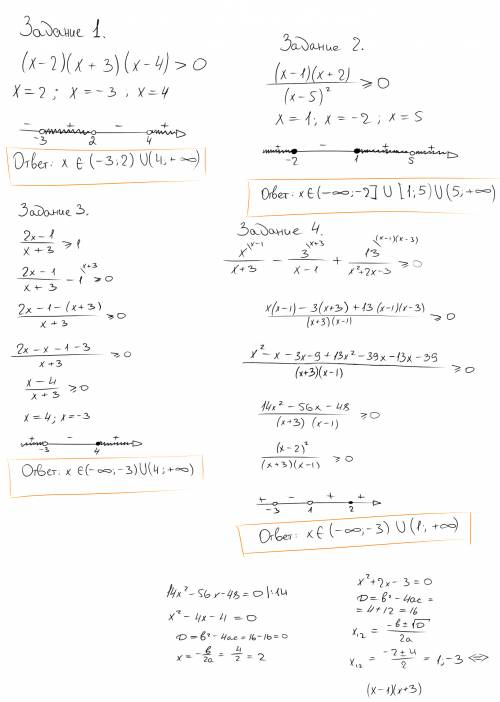 Задание 1.
(x-2)(x+3)(x-4) > 0
x=2; x=-3, x=4
- + - +
-3 2 4
Ответ: x ∈ (-3; 2) ∪ (4; +∞)
Задание 2.
(x-1)(x+2) / (x-5)² ≥ 0
x=1; x=-2; x=5
+ - + +
-2 1 5
Ответ: x ∈ (-∞; -2] ∪ [1; 5) ∪ (5; +∞)
Задание 3.
2x-1 / x+3 ≥ 1
2x-1 / x+3 - 1^(x+3) ≥ 0
2x-1-(x+3) / x+3 ≥ 0
2x-x-1-3 / x+3 ≥ 0
x-4 / x+3 ≥ 0
x=4; x=-3
+ - +
-3 4
Ответ: x ∈ (-∞; -3) ∪ (4; +∞)
Задание 4.
x^(x-1) / x+3 - 3^(x+3) / x-1 + 13^((x-1)(x-3)) / x²+2x-3 ≥ 0
x(x-1)-3(x+3)+13(x-1)(x-3) / (x+3)(x-1) ≥ 0
x²-x-3x-9+13x²-39x-13x-39 / (x+3)(x-1) ≥ 0
14x²-56x-48 / (x+3)(x-1) ≥ 0
(x-2)² / (x+3)(x-1) ≥ 0
+ - + +
-3 1 2
Ответ: x ∈ (-∞; -3) ∪ (1; +∞)
14x²-56x-48=0 |:14
x²-4x-4=0
D=b²-4ac=16-16=0
x=-b/2a=4/2=2
x²+2x-3=0
D=b²-4ac=
=4+12=16
x₁,₂=-b±√D / 2a
x₁,₂=-2±4 / 2=1,-3 ⇔
(x-1)(x+3)